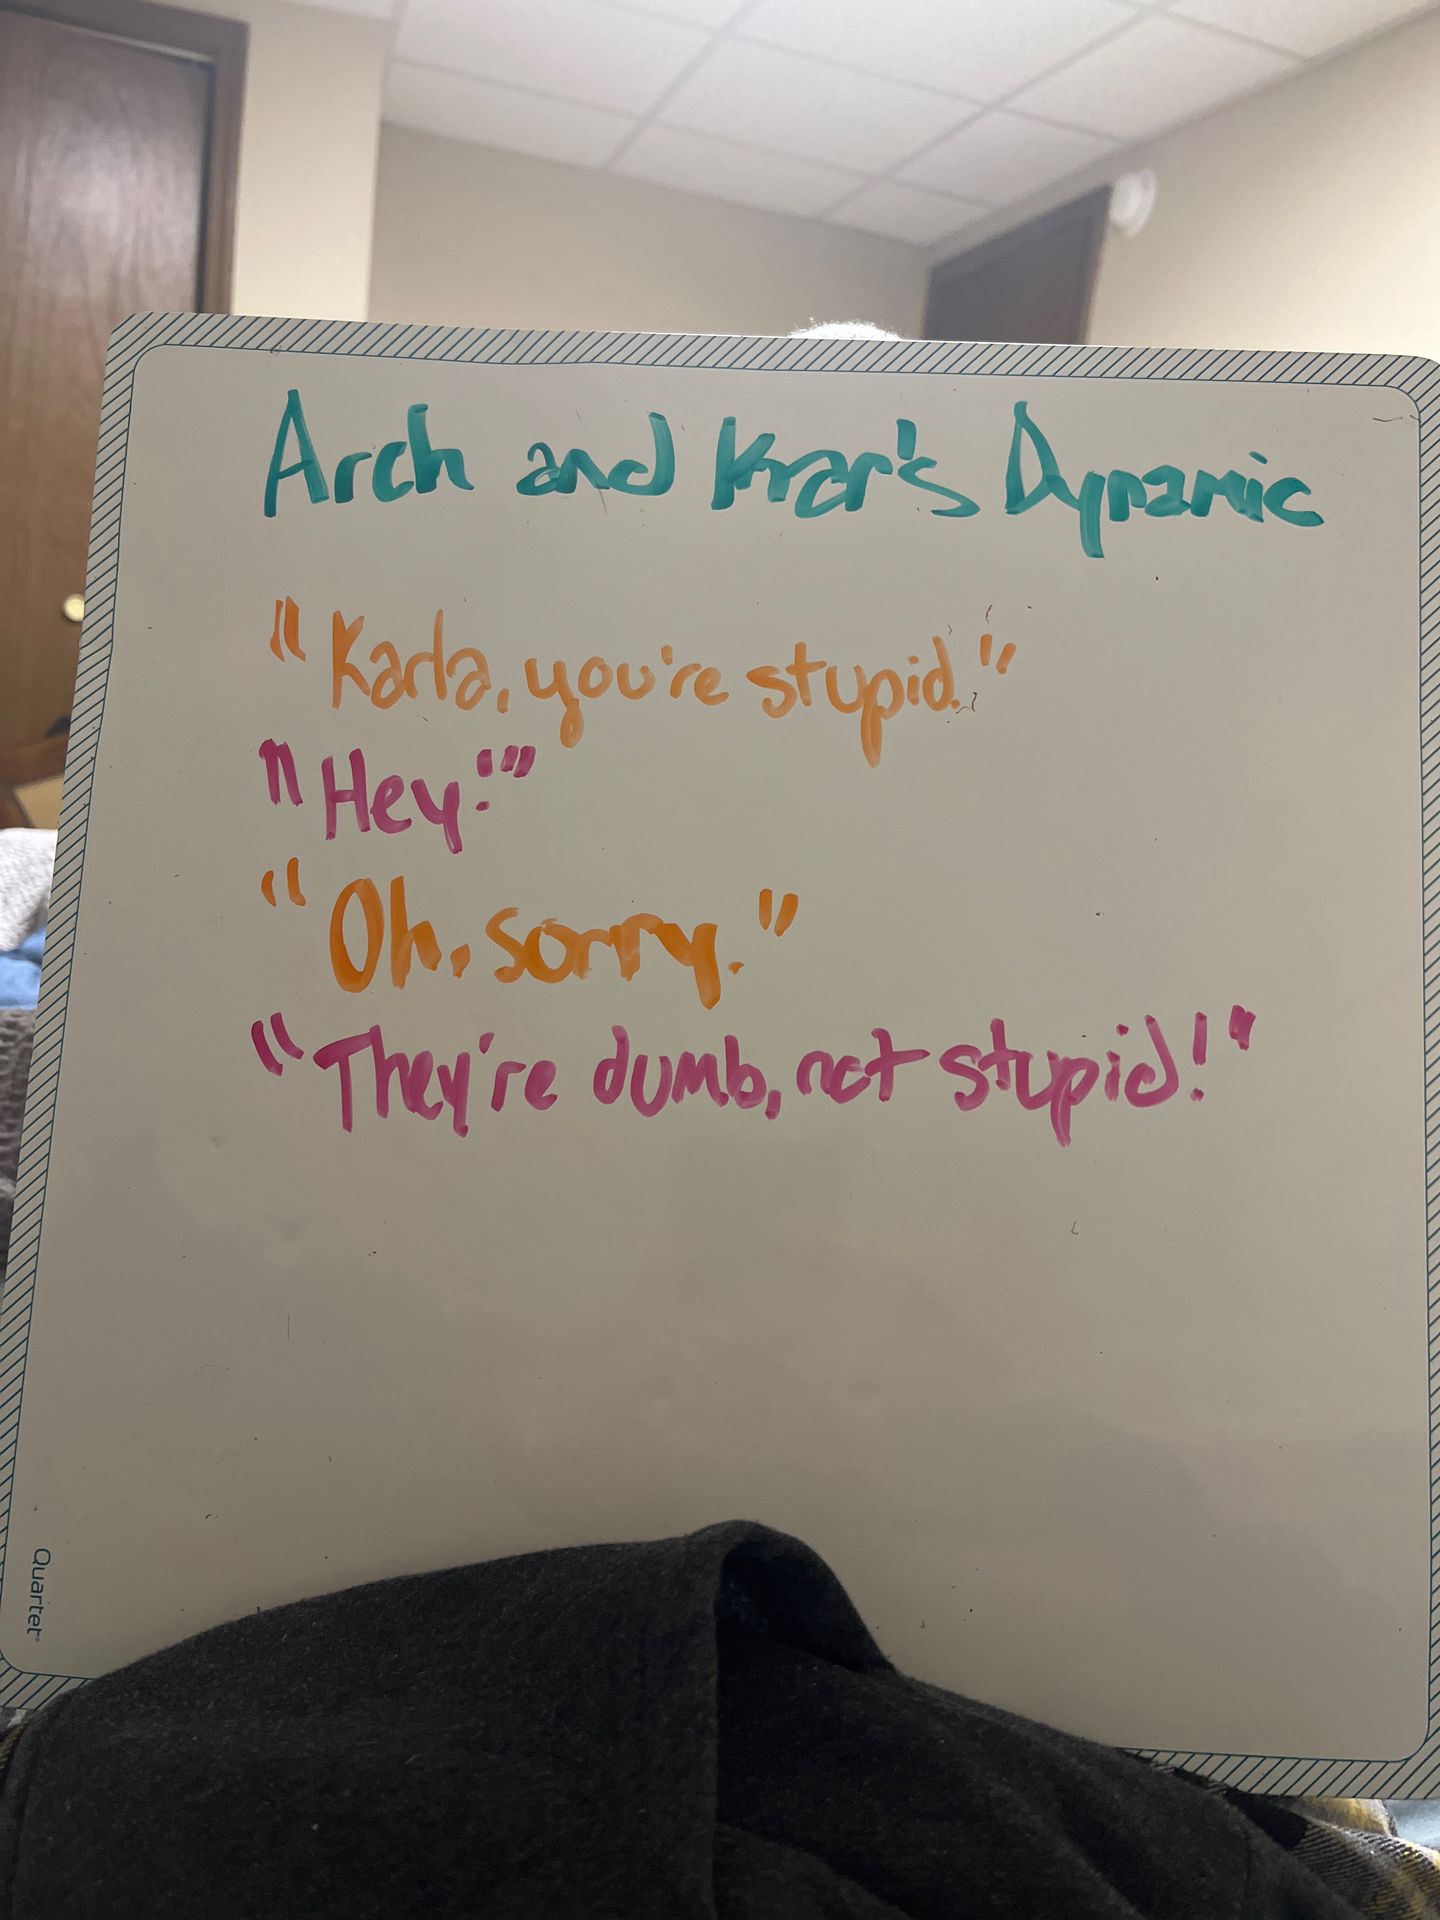 Arch and Krar's Dynamic
"Karla, you're stupid."
"Hey!"
"Oh, sorry."
"They're dumb, not stupid!"
Quartet